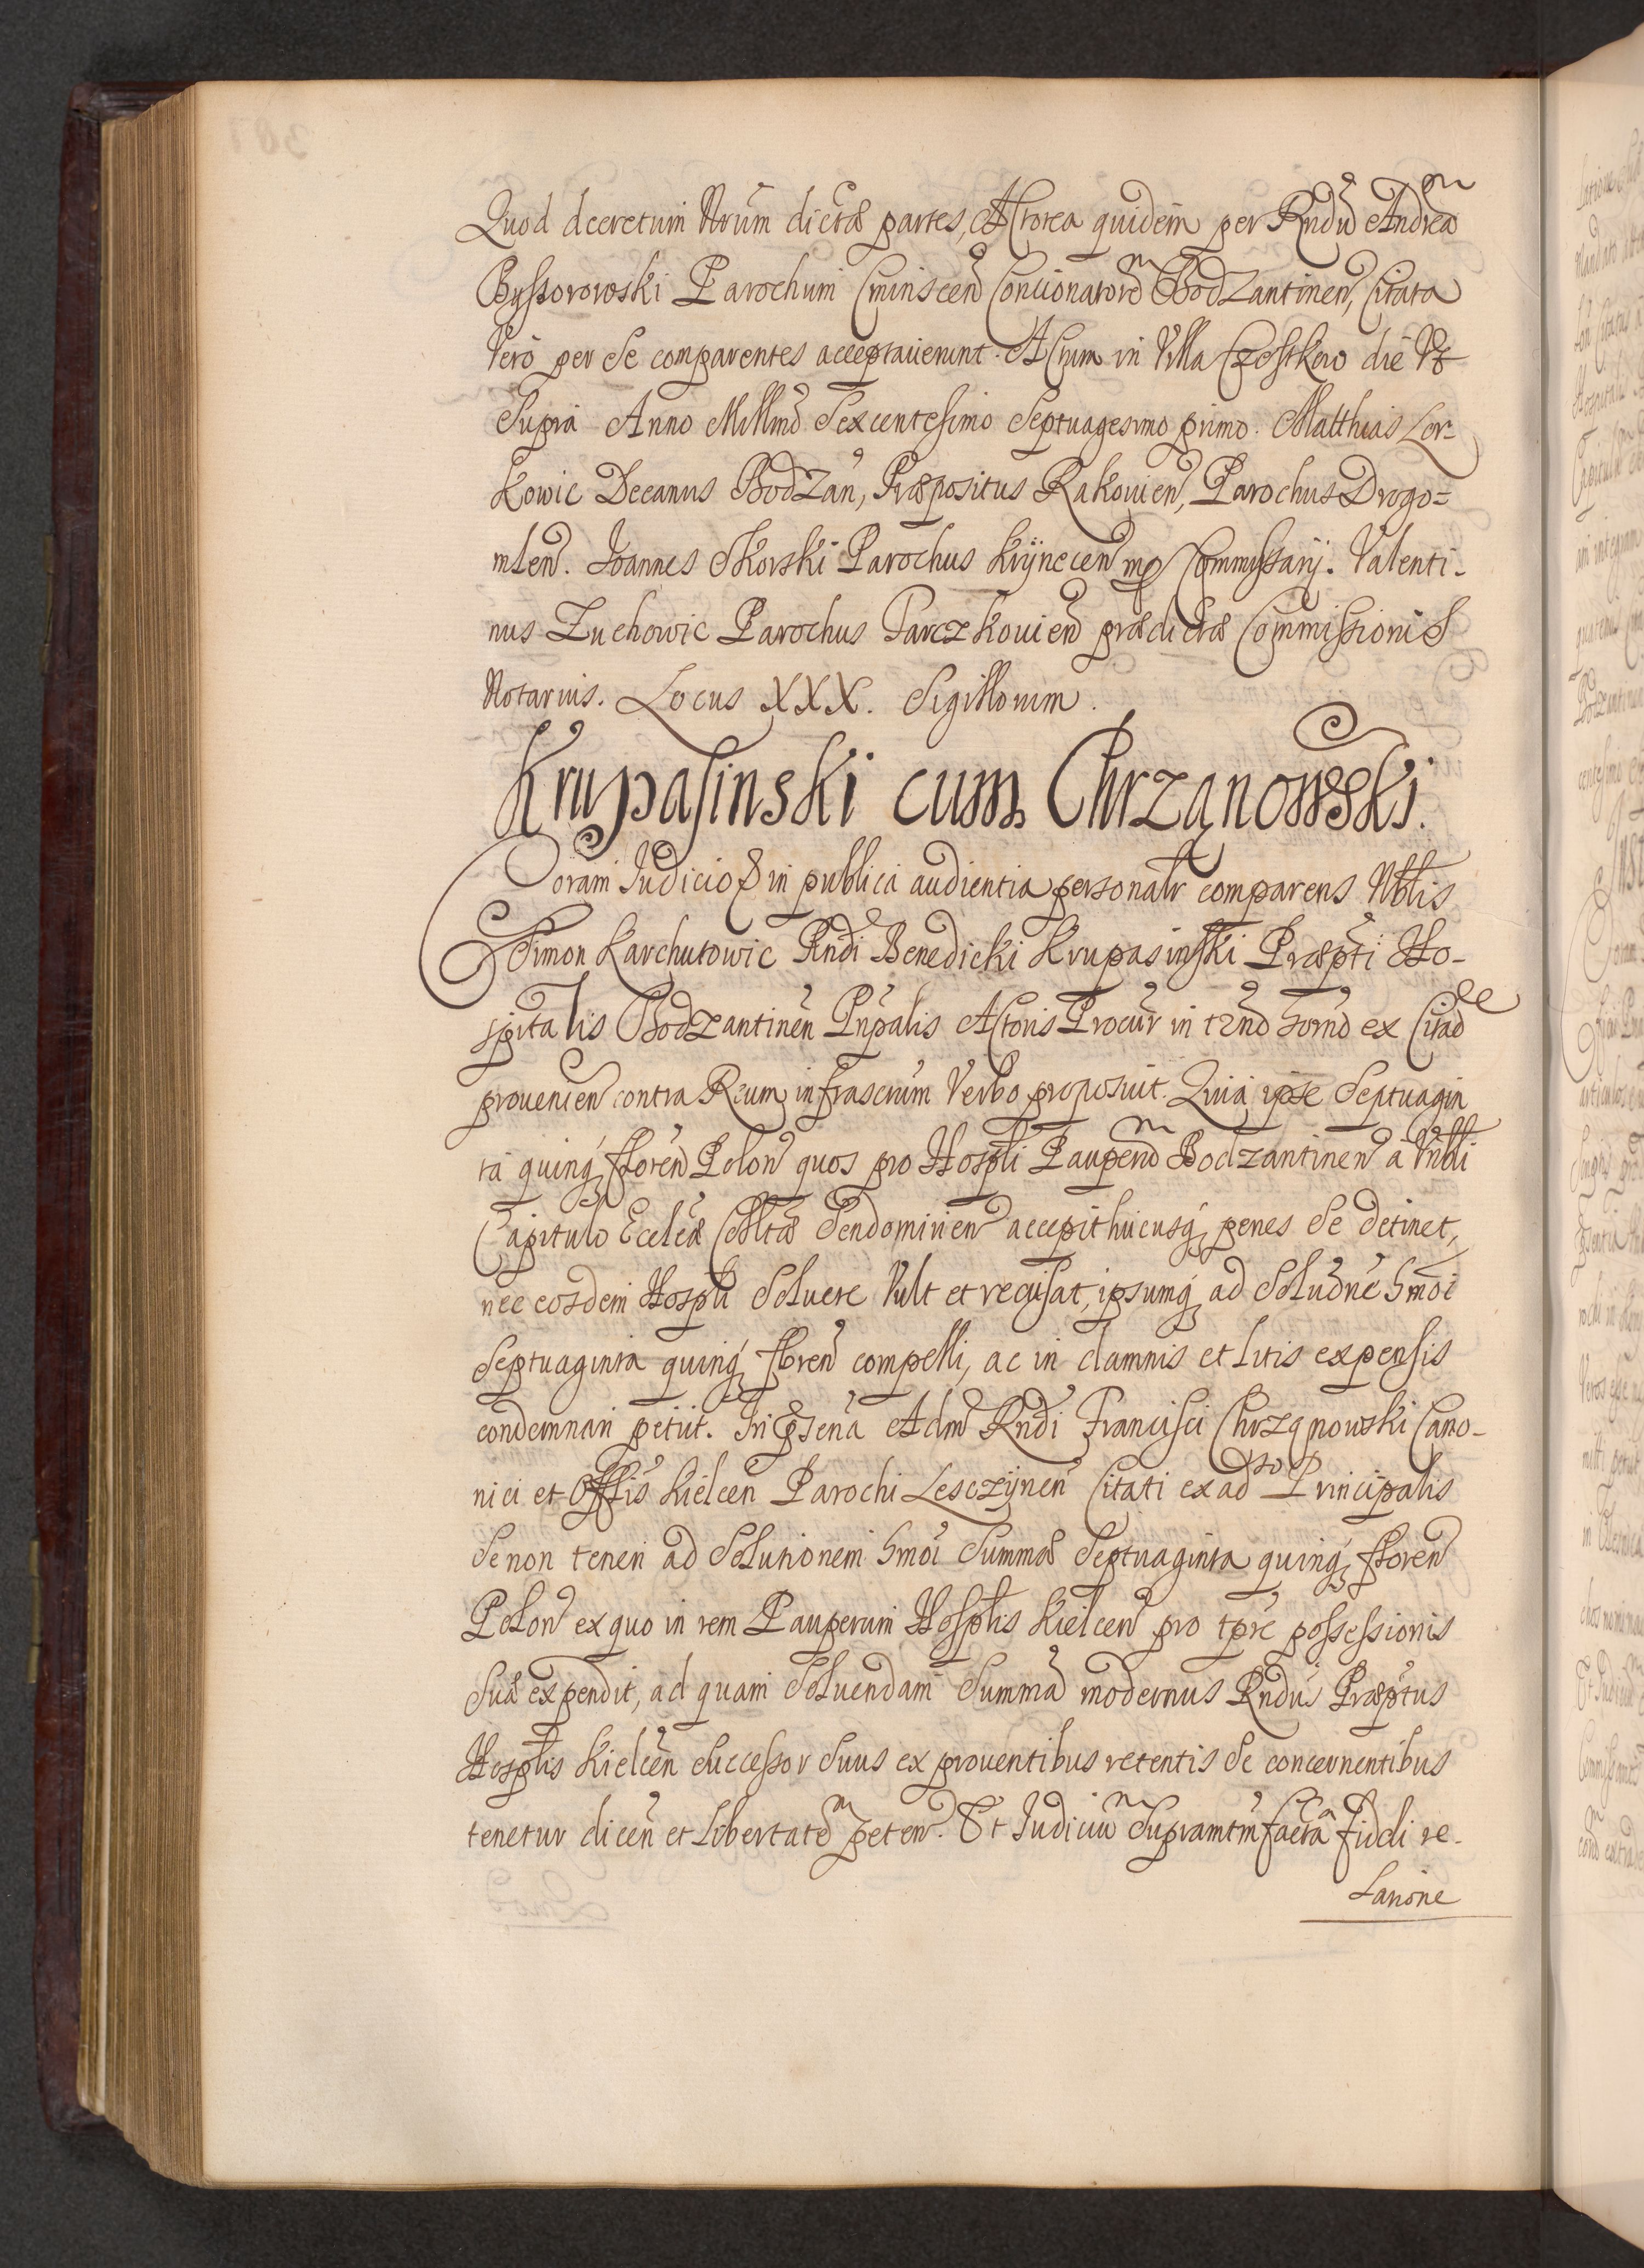 Quod decretum Nrum dictæ partes, Actorea quidem per Rndū Andreā
Byssorowski Parochum Cminscen̄ Concionatorē Bodzantinen̄, Citata
Vero per se comparentes acceptauerunt. Actum in Villa Czostkow die Vt
Supra Anno Millmō Sexcentesimo Septuagesimo primo. Matthias Lor-
kowic Decanus Bodzan̄, Præpositus Rakouien̄, Parochus Drogo=
mlen̄. Joannes Skorski Parochus Krynecen̄ mp Commissarij. Valenti-
nus Zuchowic Parochus Tarczkouien̄ prædictæ Commissionis
Notarius. Locus XXX. Sigillorum.
Krupasinski cum Chrzanowski.
Coram Judicio in publica audientia personalr comparens Nblis
Simon Karchutowic Rndi Benedicki Krupasinski Præpti Ho-
spitalis Bodzantinen̄ Pnpalis Actoris Procur in tɀno horno ex Citae
prouenien̄ contra Reum infrascrum Verbo proposuit. Quia ipse Septuagin
ta quinq florēn Polon̄ quos pro Hospli Pauperū Bodzantinen̄ a Vnbli
Capitulo Eccleæ Colltæ Sendomirien̄ accepit hucusq penes se detinet,
nec eosdem Hospli Soluere Vult et recusat, ipsumq ad Soludne hmoi
Septuaginta quinq floren̄ compelli, ac in damnis et litis expensis
condemnari petiit. In psena Adm Rndi Francisci Chrzanowski Cano-
nici et Offlis Kielcen̄ Parochi Lesczynen̄ Citati ex adso Principalis
Se non teneri ad Solutionem hmoi Summæ Septuaginta quinq floren̄
Polon̄ ex quo in rem Pauperum Hosplis Kielcen̄ pro tpre possessionis
Suæ expendit, ad quam Soluendam Summā modernus Rndus Præptus
Hosplis Kielcen̄ Successor Suus ex prouentibus retentis Se concernentibus
tenetur dicen̄ et libertatē peten̄. Et Judiciū Supramtm facta fiddi re-
lanione